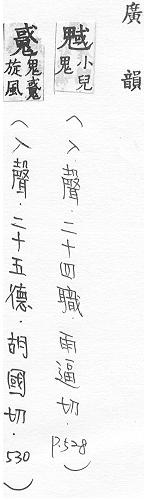 廣韻
魊 小兒鬼
(入聲.二十四職.雨逼切.P.528)
鬼 旋風
(入聲.二十五德.胡國切.530)